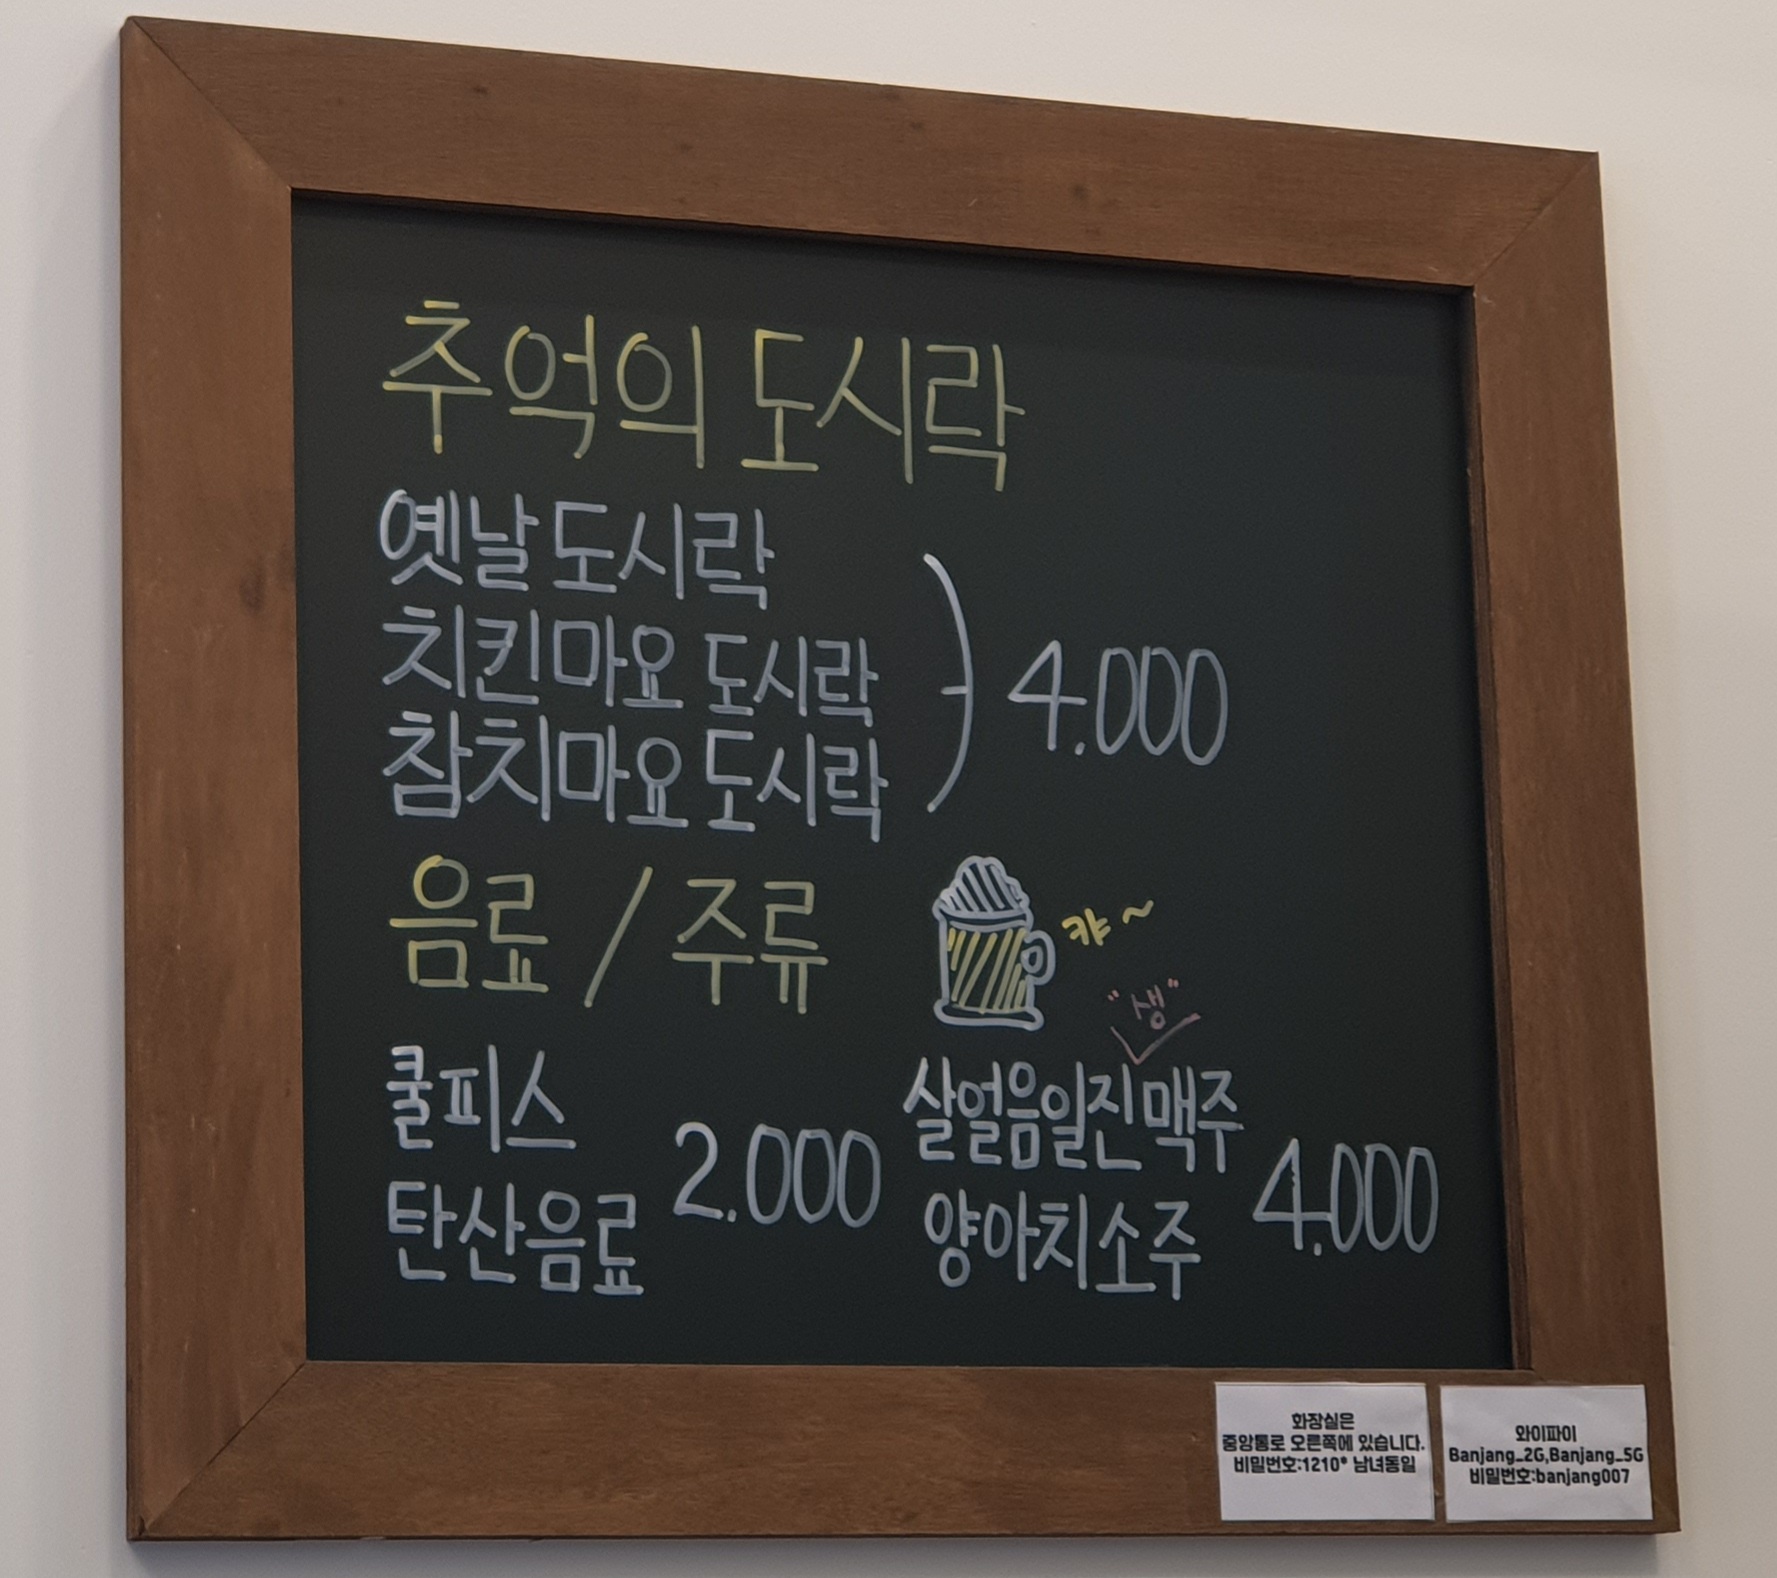 추억의 도시락
옛날 도시락
치킨마요 도시락
참치마요 도시락
4.000
음료 / 주류
캬~
쿨피스
탄산음료
2.000
"생"
살얼음일진맥주
양아치소주
4.000
화장실은
중앙통로 오른쪽에 있습니다.
비밀번호:1210* 남녀동일
와이파이
Banjang_2G,Banjang_5G
비밀번호:banjang007